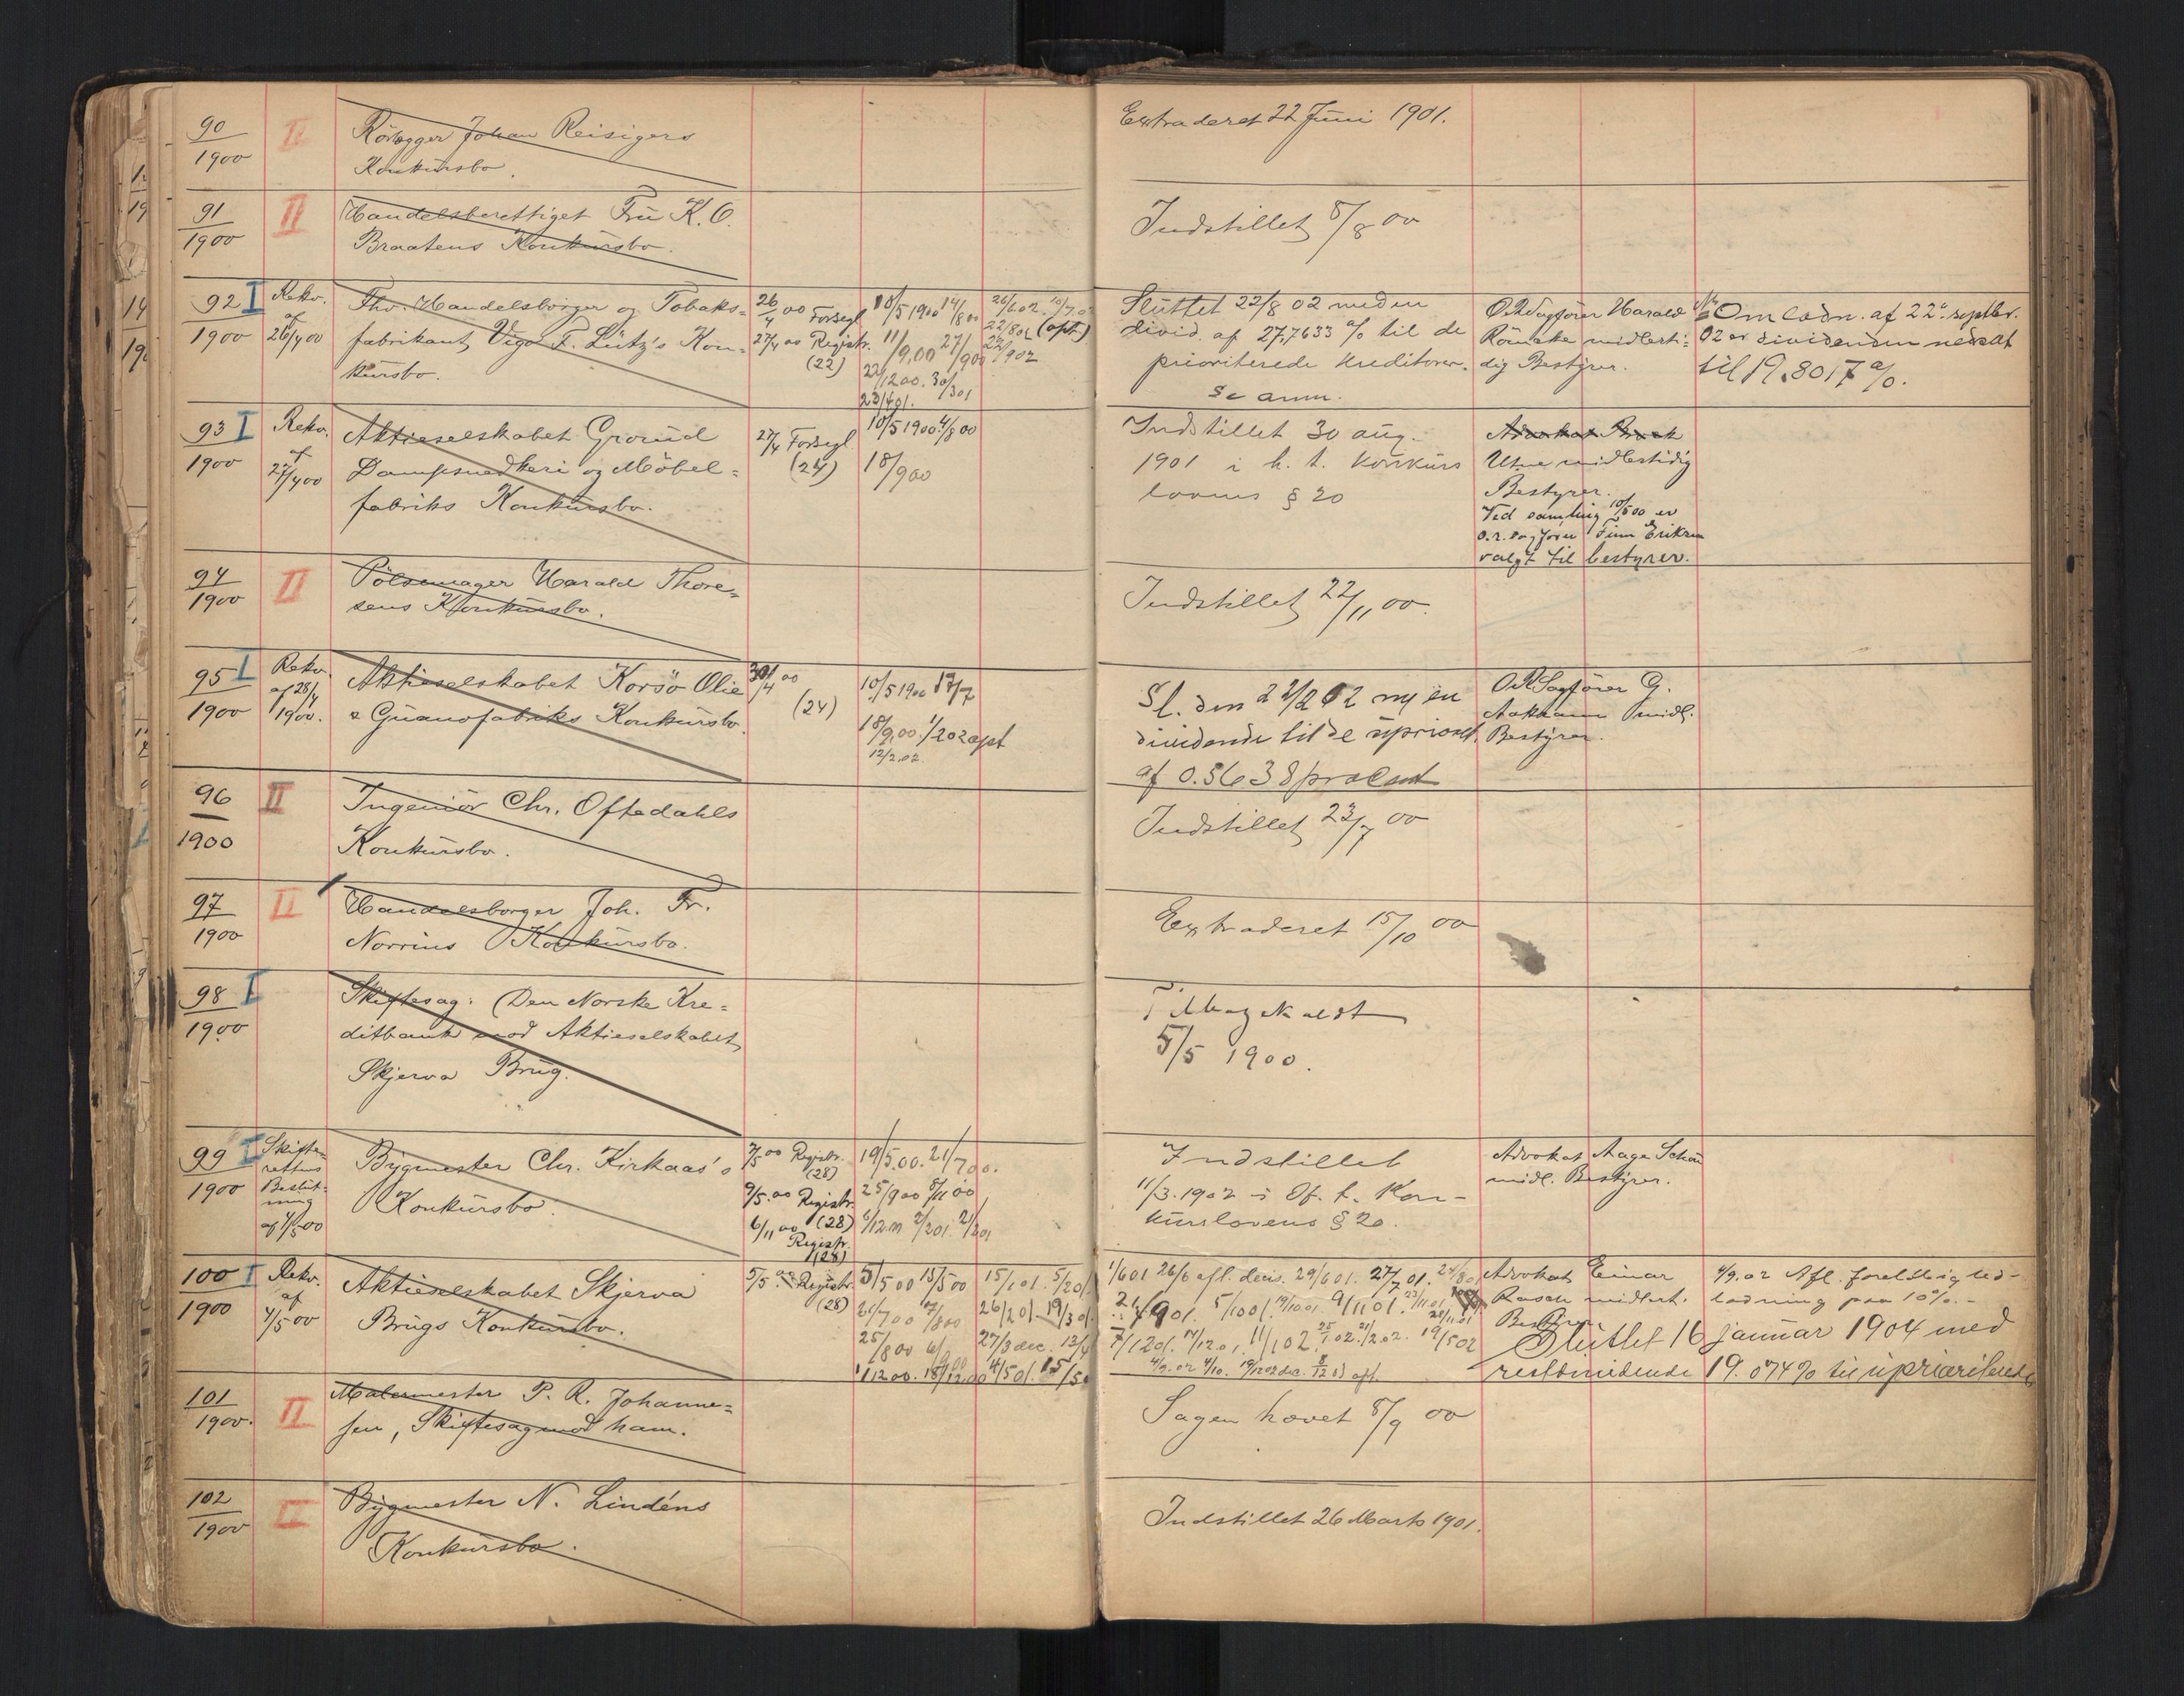 90
1900
II
Rörlægger Johan Reisigers
Konkursbo.
Extraderet 22 Juni 1901.
91
1900
II
Handelsberettiget Fru K. O.
Braatens Konkursbo.
Indstillet 8/8 00
92 I
1900
Rekv.
af
26/4 00
Fhv. Handelsborger og Tobaks-
fabrikant Vigo F. Lütz's Kon-
kursbo.
26/4 00 Forsegl.
27/4 00 Registr.
(22)
18/5 1900 14/8 00
11/9.00 27/9 00
22/12 00. 30/3 01
26/6 02. 10/7 02
22/8 02 (opt.)
Sluttet 22/8 02 meden
divid. af 27,7633 % til de
prioriterede kreditorer.
Se anm.
O.R.Sagförer Harald
midlerti-
dig Bestyrer.
Omladn. af 22 septbr.
02 er dividenden nedsat
til 19.8017 %.
93 I
1900
Rekv.
af
27/4 00
Aktieselskabet Grorud
Dampsnedkeri og Möbel-
fabriks Konkursbo.
27/4 Forsegl.
(24)
10/5 1900 4/8 00
18/9 00
Indstillet 30 aug.
1901 i h. t. konkurs
lovens § 20
Advokat
Utne midlertidig
Bestyrer.
Ved samling 10/5 00 er
o.r.sagförer Finn Eriksen
valgt til bestyrer.
94
1900
II
Pölsemager Harald Thore-
sens Konkursbo.
Indstillet 22/11 00.
95 I
1900
Rekv.
af 28/4
1900.
Aktieselskabet Korsö Olie
& Guanofabriks Konkursbo.
30/4 00
(24)
10/5 1900 17/7
18/9.00. 1/2 02 opt
12/2.02.
Sl. den 22/2 02 m en
dividende til de uprioset.
af 0.5638 procent
O.R.Sagförer G.
Aakrann midl.
Bestyrer.
96
1900
II
Ingeniör Chr. Oftedahls
Konkursbo.
Indstillet 23/7 00
97
1900
II
Handelsborger Joh. Fr.
Norrins Konkursbo.
Extraderet 15/10 00
98 I
1900
Skiftesag: Den Norske Kre-
ditbank mod Aktieselskabet
Skjerva Brug.
Tilbagekaldt
5/5 1900.
99 I
1900
Skifte-
rettens
Beslut-
ning
af 7/5 00
Bygmester Chr. Kirkaas's
Konkursbo.
7/5 00 Registr.
(28)
9/5.00 Registr.
(28)
6/11 00
Registr.
(28)
19/5.00. 21/7 00.
25/9 00 8/11 00
Indstillet
11/3.1902 i Of. t. Kon-
kurslovens § 20.
Advokat Aage Schou
midl. Bestyrer.
100 I
1900
Rekv.
af
4/5 00
Aktieselskabet Skjerva
Brugs Konkursbo.
5/5.00 Registr.
(28)
5/5 00 15/5 00
15/1 01. 5/2 01
26/2 01. 19/3 01
27/3 dec. 13/4
4/5 01. 15/5
1/12 00. 18/12 00
1/6 01 26/6 afl. decis. 29/6 01. 27/7 01.
5/10 01. 19/10 01. 9/11 01.
7/12 01. 17/12 01. 11/1 02. 25/1.02. 21/2.02. 19/5 02
Advokat Einar
Rasch midlert.
Bestyrer
4/9.02 Afl. foreløbig ud-
lodning paa 10%.
Sluttet 16 januar 1904 med
restdividende 19.074% til uprioriterede
101
1900.
II
Malermester P. R. Johanne-
sen, Skiftesag mod ham.
Sagen hævet 8/9 00
102
1900
II
Bygmester N. Lindéns
Konkursbo.
Indstillet 26 Marts 1901.